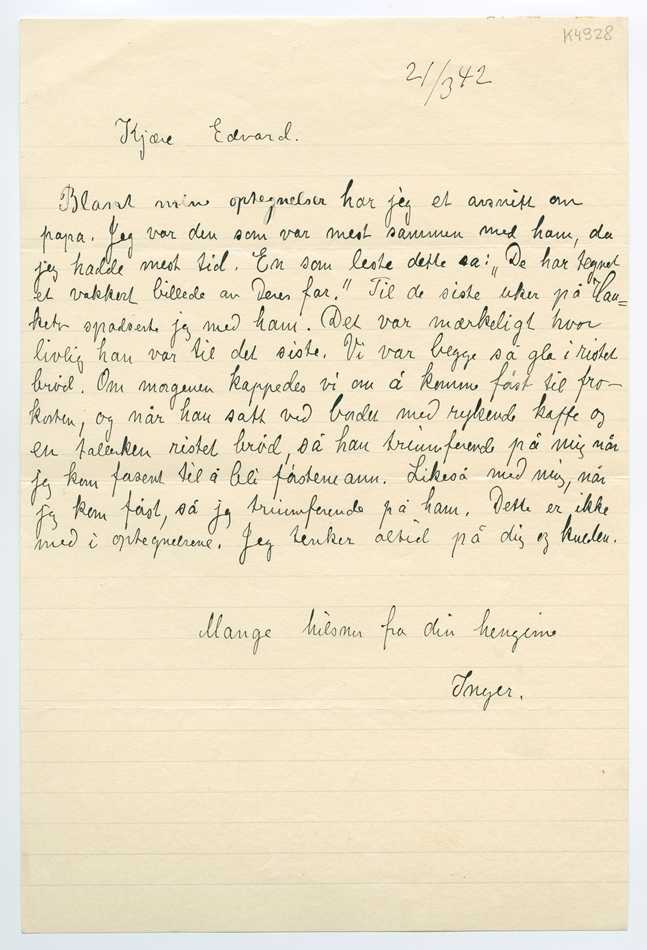 K4928
21/3 42
Kjære Edvard.
Blant mine optegnelser har jeg et avsnitt om
papa. Jeg var den som var mest sammen med ham, da
jeg hadde mest tid. En som leste dette sa: „De har tegnet
et vakkert billede av Deres far." Til de siste uker på
spaserte jeg med ham. Det var mærkeligt hvor
livlig han var til det siste. Vi var begge så gla i ristet
brød. Om morgenen kappedes vi om å komme først til fro-
kosten, og når han satt ved bordet med rykende kaffe og
en tallerken ristet brød, så han triumferende på mig når
jeg kom farent til å bli førstemann. Likeså med mig, når
jeg kom først, så jeg triumferende på ham. Dette er ikke
med i optegnelsene. Jeg tenker altid på dig og kulden.
Mange hilsner fra din hengivne
Inger.